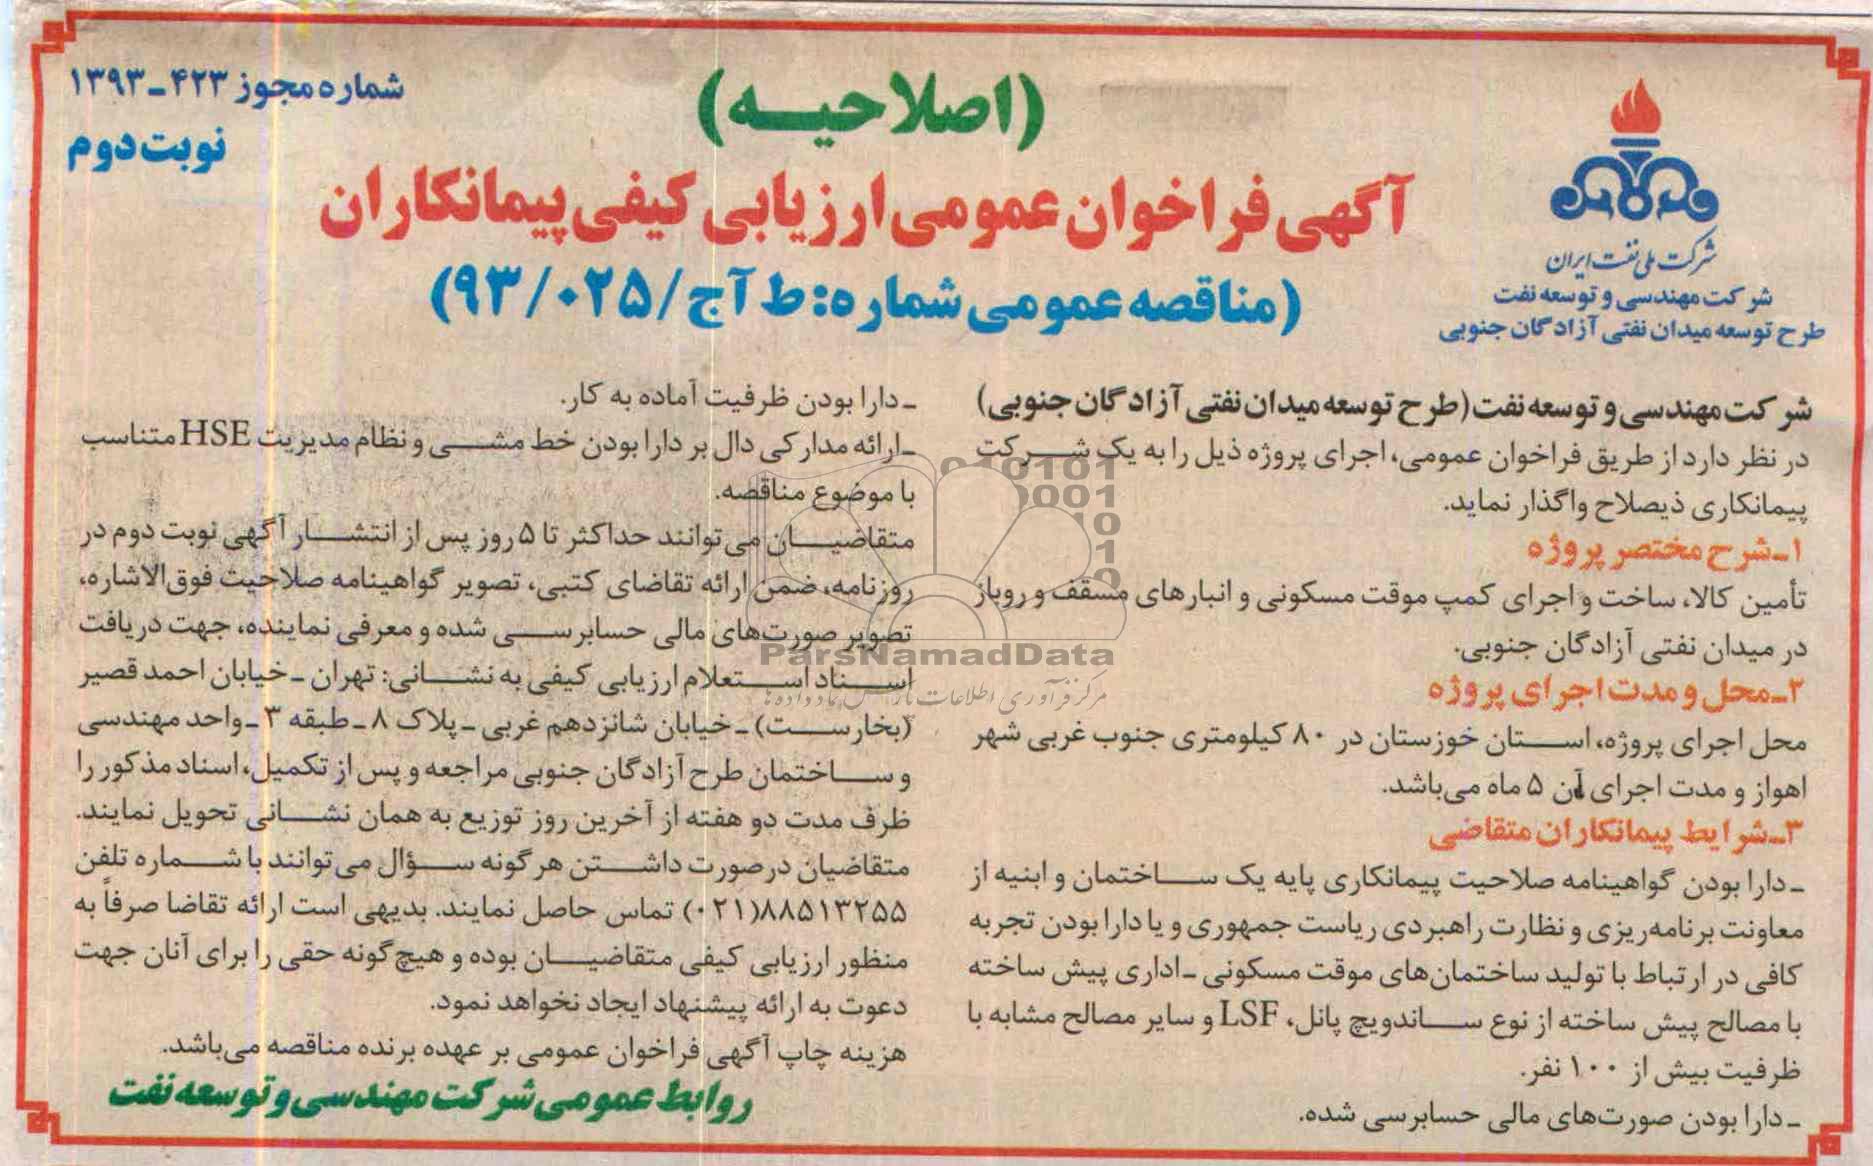 شماره مجوز ۴۲۳-۱۳۹۳
نوبت دوم
(اصلاحیه)
آگهی فراخوان عمومی ارزیابی کیفی پیمانکاران
(مناقصه عمومی شماره: ط آ ج / ۰۲۵ / ۹۳)
شرکت ملی نفت ایران
شرکت مهندسی و توسعه نفت
طرح توسعه میدان نفتی آزادگان جنوبی
شرکت مهندسی و توسعه نفت (طرح توسعه میدان نفتی آزادگان جنوبی)
در نظر دارد از طریق فراخوان عمومی، اجرای پروژه ذیل را به یک شرکت
پیمانکاری ذیصلاح واگذار نماید.
۱-شرح مختصر پروژه
تأمین کالا، ساخت و اجرای کمپ موقت مسکونی و انبارهای مسقف و روباز
در میدان نفتی آزادگان جنوبی.
۲-محل و مدت اجرای پروژه
محل اجرای پروژه، استان خوزستان در ۸۰ کیلومتری جنوب غربی شهر
اهواز و مدت اجرای آن ۵ ماه می‌باشد.
۳-شرایط پیمانکاران متقاضی
- دارا بودن گواهینامه صلاحیت پیمانکاری پایه یک ساختمان و ابنیه از
معاونت برنامه‌ریزی و نظارت راهبردی ریاست جمهوری و یا دارا بودن تجربه
کافی در ارتباط با تولید ساختمان‌های موقت مسکونی - اداری پیش ساخته
با مصالح پیش ساخته از نوع ساندویچ پانل، LSF و سایر مصالح مشابه با
ظرفیت بیش از ۱۰۰ نفر.
- دارا بودن صورت‌های مالی حسابرسی شده.
- دارا بودن ظرفیت آماده به کار.
- ارائه مدارکی دال بر دارا بودن خط مشی و نظام مدیریت HSE متناسب
با موضوع مناقصه.
متقاضیان می‌توانند حداکثر تا ۵ روز پس از انتشار آگهی نوبت دوم در
روزنامه، ضمن ارائه تقاضای کتبی، تصویر گواهینامه صلاحیت فوق‌الاشاره،
تصویر صورت‌های مالی حسابرسی شده و معرفی نماینده، جهت دریافت
اسناد استعلام ارزیابی کیفی به نشانی: تهران - خیابان احمد قصیر
(بخارست) - خیابان شانزدهم غربی - پلاک ۸ - طبقه ۳ - واحد مهندسی
و ساختمان طرح آزادگان جنوبی مراجعه و پس از تکمیل، اسناد مذکور را
ظرف مدت دو هفته از آخرین روز توزیع به همان نشانی تحویل نمایند.
متقاضیان درصورت داشتن هرگونه سؤال می‌توانند با شماره تلفن
۸۸۵۱۳۲۵۵(۰۲۱) تماس حاصل نمایند. بدیهی است ارائه تقاضا صرفاً به
منظور ارزیابی کیفی متقاضیان بوده و هیچ‌گونه حقی را برای آنان جهت
دعوت به ارائه پیشنهاد ایجاد نخواهد نمود.
هزینه چاپ آگهی فراخوان عمومی بر عهده برنده مناقصه می‌باشد.
روابط عمومی شرکت مهندسی و توسعه نفت
ParsNamadData